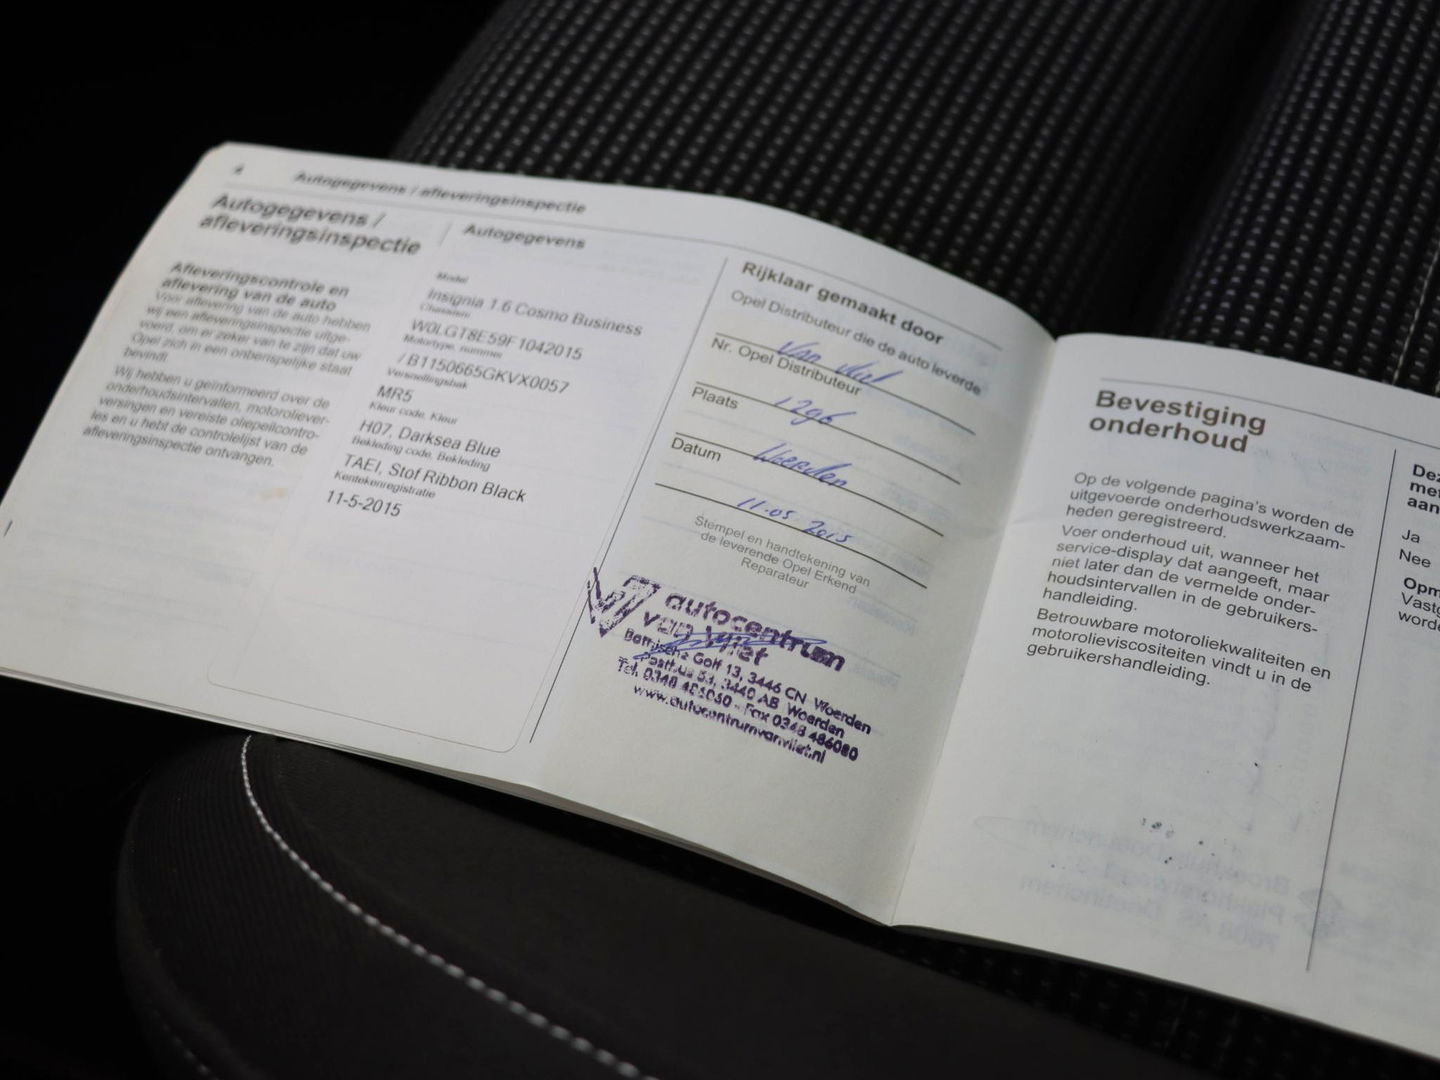 4 Autogegevens / afleveringsinspectie
Autogegevens /
afleveringsinspectie
Afleveringscontrole en
aflevering van de auto
Voor aflevering van de auto hebben
wij een afleveringsinspectie uitge-
voerd, om er zeker van te zijn dat uw
Opel zich in een onberispelijke staat
bevindt.
Wij hebben u geïnformeerd over de
onderhoudsintervallen, motoroliever-
versingen en vereiste oliepeilcontro-
les en u hebt de controlelijst van de
afleveringsinspectie ontvangen.
Autogegevens
Model
Insignia 1.6 Cosmo Business
Chassisnr.
W0LGT8E59F1042015
Motortype, nummer
/ B1150665GKVX0057
Versnellingsbak
MR5
Kleur code, Kleur
H07, Darksea Blue
Bekleding code, Bekleding
TAEI, Stof Ribbon Black
Kentekenregistratie
11-5-2015
Rijklaar gemaakt door
Opel Distributeur die de auto leverde
Van Vliet
Nr. Opel Distributeur
1296
Plaats
Woerden
Datum
11-05 2015
Stempel en handtekening van
de leverende Opel Erkend
Reparateur
autocentrum
van vliet
Golf 13, 3446 CN Woerden
3440 AB Woerden
Tel. 0348 - Fax 0348 486080
www.autocentrumvanvliet.nl
Bevestiging
onderhoud
Op de volgende pagina's worden de
uitgevoerde onderhoudswerkzaam-
heden geregistreerd.
Voer onderhoud uit, wanneer het
service-display dat aangeeft, maar
niet later dan de vermelde onder-
houdsintervallen in de gebruikers-
handleiding.
Betrouwbare motoroliekwaliteiten en
motorolieviscositeiten vindt u in de
gebruikershandleiding.
Dez
met
aan
Ja
Nee
Opm
Vast
worde